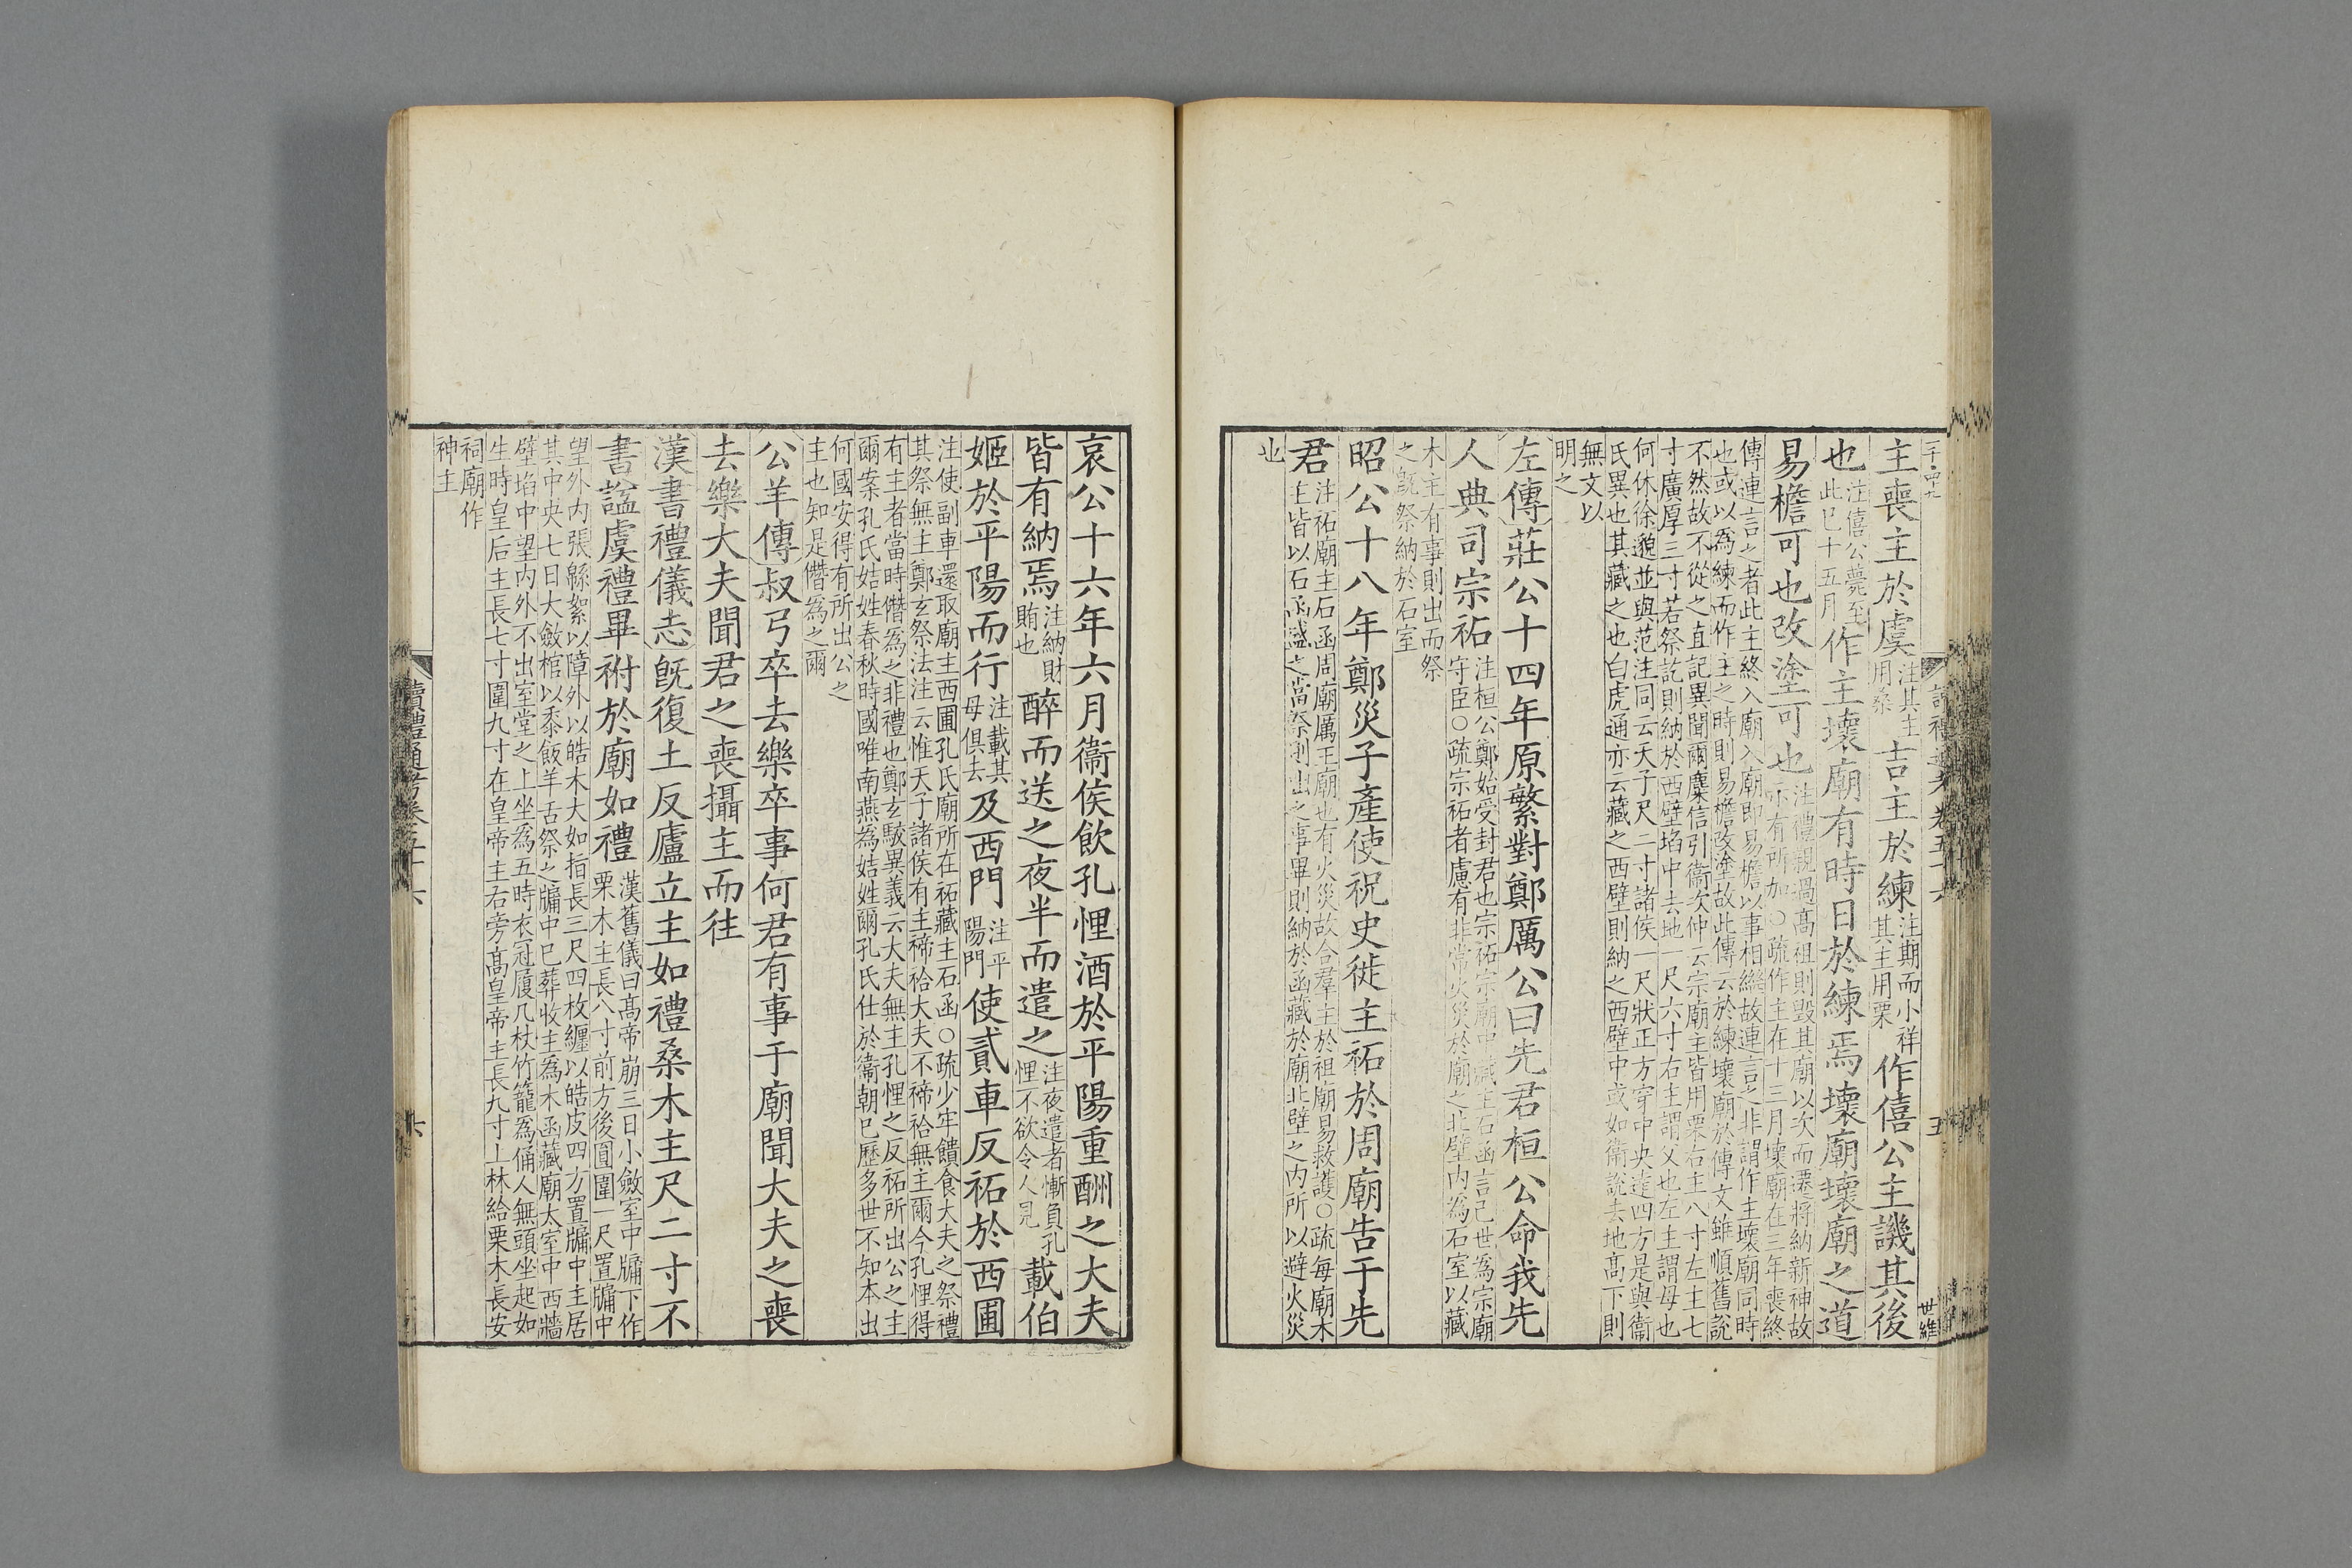 二千四十九
讀禮通考卷五十六
五
世維
主喪主於虞注其主用桑吉主於練注期而小祥其主用栗作僖公主譏其後
也注僖公薨至此已十五月作主壞廟有時日於練焉壞廟壞廟之道
易檐可也改塗可也注禮親過高祖則毀其廟以次而遷將納新神故示有所加○疏作主在十三月壞廟在三年喪終
傳連言之者此主終入廟入廟即易檐以事相繼故連言之非謂作主壞廟同時
也或以爲練而作主之時則易檐改塗故此傳云於練壞廟於傳文雖順舊説
不然故不從之直記異聞爾麋信引衞次仲云宗廟主皆用栗右主八寸左主七
寸廣厚三寸若祭訖則納於西壁埳中去地一尺六寸右主謂父也左主謂母也
何休徐邈並與范注同云天子尺二寸諸侯一尺狀正方穿中央達四方是與衞
氏異也其藏之也白虎通亦云藏之西壁則納之西壁中或如衞說去地高下則
無文以
明之
左傳莊公十四年原繁對鄭厲公曰先君桓公命我先
人典司宗祏注桓公鄭始受封君也宗祏宗廟中藏主石函言己世爲宗廟守臣○疏宗祏者慮有非常火災於廟之北壁内爲石室以藏
木主有事則出而祭
之既祭納於石室
昭公十八年鄭災子產使祝史徙主祏於周廟告于先
君注祏廟主石函周廟厲王廟也有火災故合羣主於祖廟易救護○疏每廟木主皆以石函盛之當祭則出之事畢則納於函藏於廟北壁之内所以避火災
也
哀公十六年六月衞侯飲孔悝酒於平陽重酬之大夫
皆有納焉注納財賄也醉而送之夜半而遣之注夜遣者慚負孔悝不欲令人見載伯
姬於平陽而行注載其母俱去及西門注平陽門使貳車反祏於西圃
注使副車還取廟主西圃孔氏廟所在祏藏主石函○疏少牢饋食大夫之祭禮
其祭無主鄭玄祭法注云惟天子諸侯有主禘祫大夫不禘祫無主爾今孔悝得
有主者當時僭爲之非禮也鄭玄駮異義云大夫無主孔悝之反祏所出公之主
爾案孔氏姞姓春秋時國唯南燕爲姞姓爾孔氏仕於衞朝已歷多世不知本出
何國安得有所出公之
主也知是僭爲之爾
公羊傳叔弓卒去樂卒事何君有事于廟聞大夫之喪
去樂大夫聞君之喪攝主而往
漢書禮儀志既復土反廬立主如禮桑木主尺二寸不
書謚虞禮畢祔於廟如禮漢舊儀曰高帝崩三日小斂室中牖下作栗木主長八寸前方後圓圍一尺置牖中
望外内張緜絮以障外以皓木大如指長三尺四枚纏以皓皮四方置牖中主居
其中央七日大斂棺以黍飯羊舌祭之牖中已葬收主爲木函藏廟太室中西牆
壁埳中望内外不出室堂之上坐爲五時衣冠履几杖竹籠爲俑人無頭坐起如
生時皇后主長七寸圍九寸在皇帝主右旁高皇帝主長九寸上林給栗木長安
祠廟作
神主
讀禮通考卷五十六
六